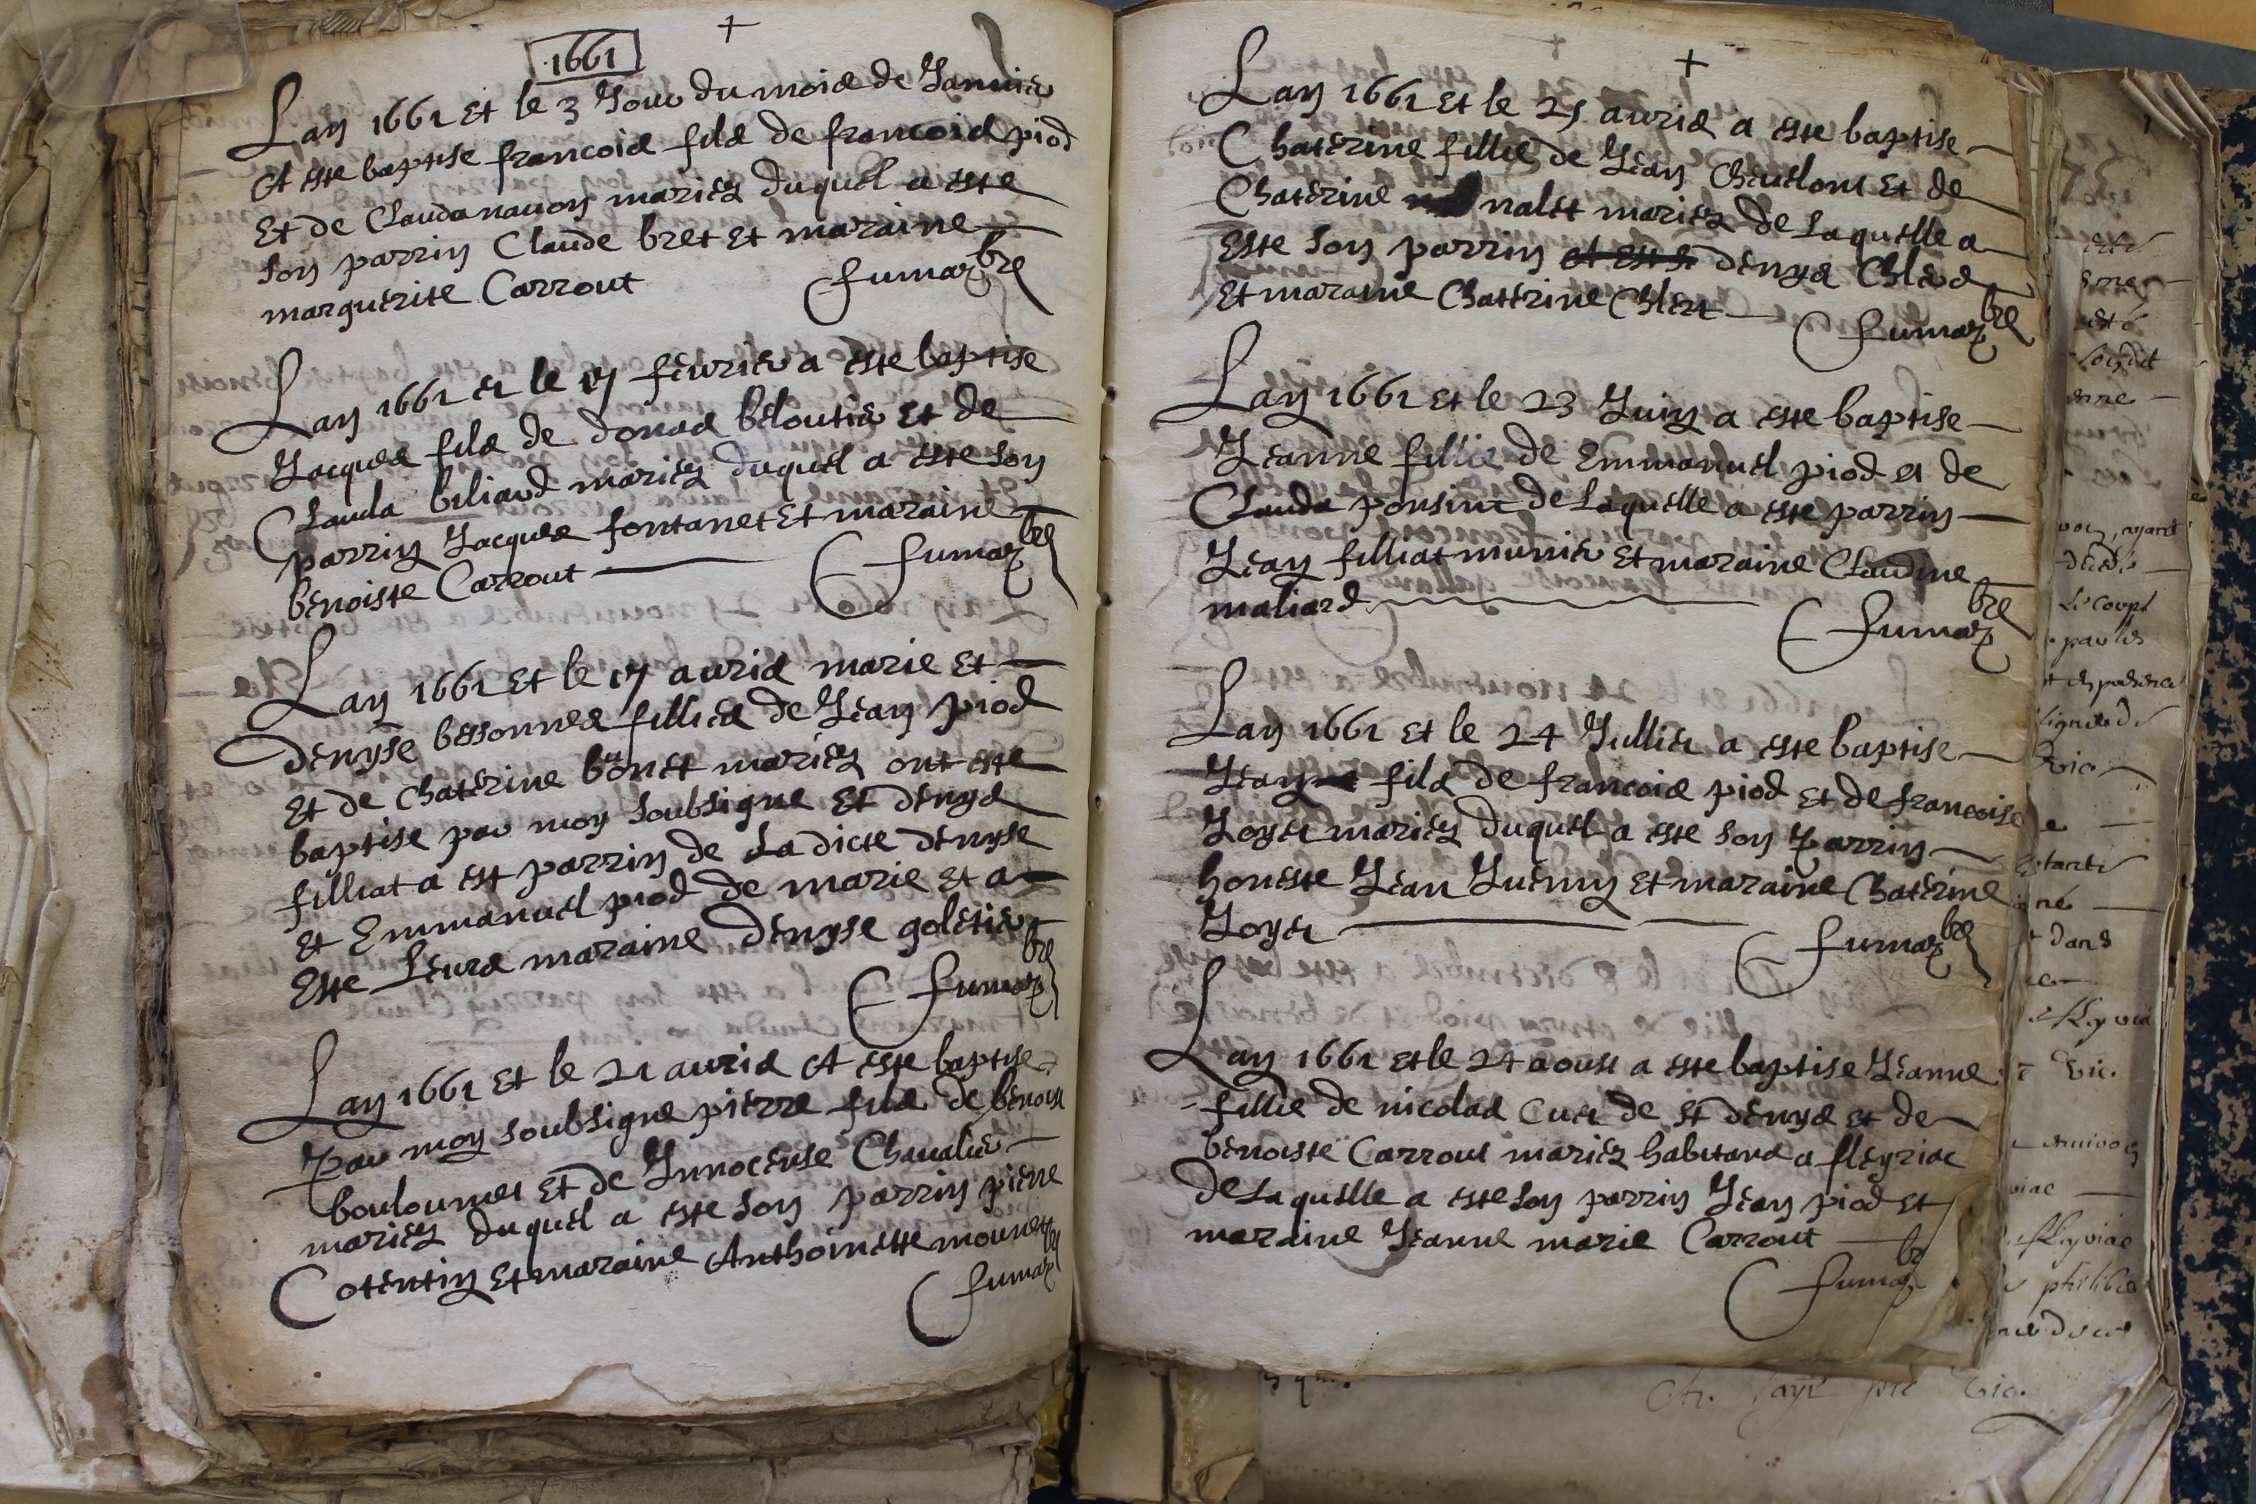 1661
Lan 1661 et le 3 Jour du mois de Januier
A este baptise francois fils de francois piod
Et de Clauda nauon mariez duquel a este
son parrin Claude bret et maraine
marguerite Carrout fumaz bre
Lan 1661 et le 17 feurier a este baptise
Jacques fils de donas beloutier et de
Clauda biliard mariez duquel a este son
parrin Jacques fontanet Et maraine
benoiste Carrout fumaz bre
Lan 1661 Et le 17 auris marie Et
denyse bessonnes fillies de Jean piod
Et de Chaterine bonet mariez ont este
baptise par moy soubsigne Et denys
filliat a est parrin de Ladicte denyse
Et Emmanuel piod de marie et a
Este Leurs maraine denyse goletier
fumaz bre
Lan 1661 Et le 21 auris A este baptise
Par moy soubsigne pierre fils de benoist
bouloumet Et de Innocense Chaualier
mariez duquel a este son parrin pierre
Cotentin Et maraine Anthoinette mounet
fumaz bre
Lan 1661 Et le 25 auris a este baptise
Chaterine fillie de Jean Cheuelont Et de
Chaterine nalet mariez de Laquelle a
Este son parrin a este denys Chlers
Et maraine Chaterine Chlert
fumaz bre
Lan 1661 Et le 23 Juin a este baptise
Jeanne fillie de Emmanuel piod et de
Clauda ponsint de Laquelle a este parrin
Jean filliat munier Et maraine Claudine
maliard fumaz bre
Lan 1661 et le 24 Jullier a este baptise
Jean fils de francois piod et de francoise
Joyer mariez duquel a este son Parrin
honeste Jean Juenin Et maraine Chaterine
Joyer fumaz bre
Lan 1661 et le 24 aoust a este baptise Jeanne
fillie de nicolas Cuer de st denys et de
benoiste Carrout mariez habitans a fleyriac
de Laquelle a este son parrin Jean piod et
maraine Jeanne marie Carrout
fumaz br